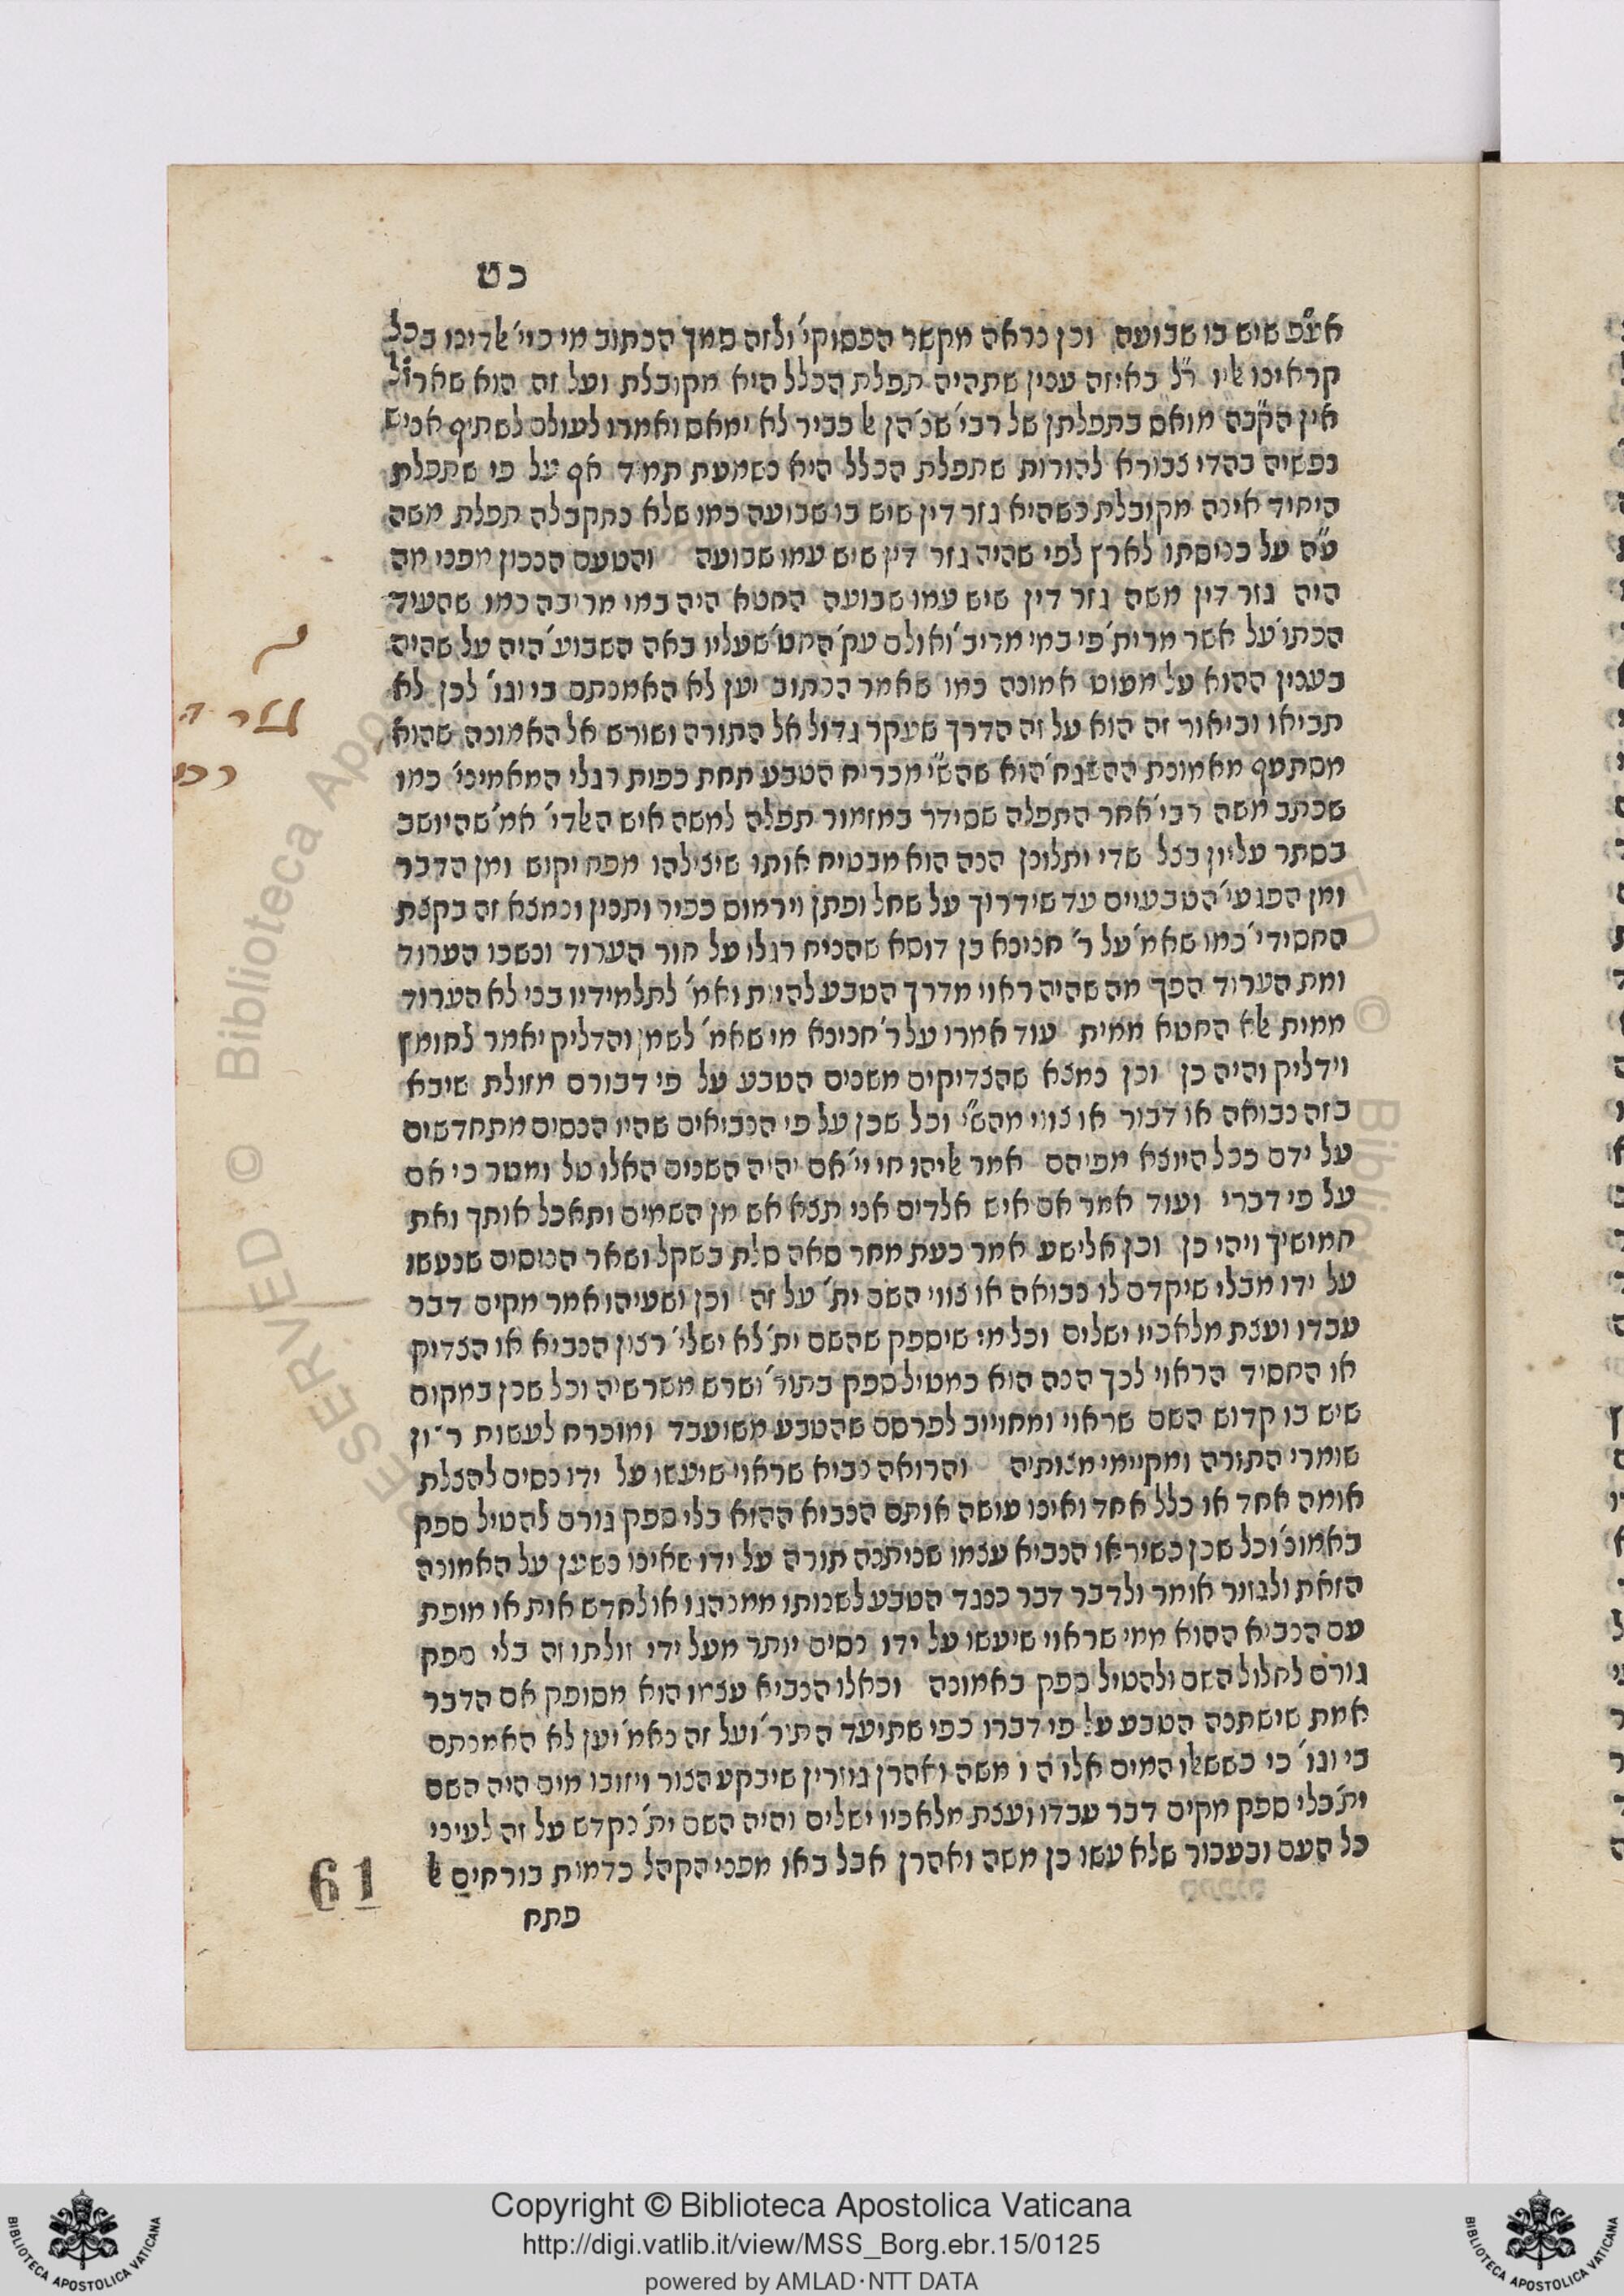 כט
אע״פ שיש בו שבועה וכן נראה מקשר הפסוקי׳ ולזה סמך הכתוב מי כיי׳ אלדינו בכל
קראינו אליו ר״ל באיזה ענין שתהיה תפלת הכלל היא מקובלת ועל זה הוא שארז״ל
אין הקב״ה מואס בתפלתן של רבי׳ שנ׳ הן אל כביר לא ימאס ואמרו לעולם לשתיף אניש
נפשיה בהדי צבורא להורות שתפלת הכלל היא נשמעת תמיד אף על פי שתפלת
היחיד אינה מקובלת כשהיא גזר דין שיש בו שבועה כמו שלא נתקבלה תפלת משה
ע״ה על כניסתו לארץ לפי שהיה גזר דין שיש עמו שבועה והטעם הנכון מפני מה
היה גזר דין משה גזר דין שיש עמו שבועה החטא היה במי מריבה כמו שהעיד
הכתו׳ על אשר מרית׳ פי במי מריב׳ ואולם עק׳ החט׳ שעליו באה השבוע׳ היה על שהיה
בענין ההוא על מעוט אמונה כמו שאמר הכתוב יען לא האמנתם בי וגו׳ לכן לא
תביאו וביאור זה הוא על זה הדרך שעקר גדול אל התורה ושורש אל האמונה שהוא
מסתעף מאמונת ההשגח׳ הוא שהש״י מכריח הטבע תחת כפות רגלי המאמיני׳ כמו
שכתב משה רבי׳ אחר התפלה שסידר במזמור תפלה למשה איש האלדי׳ אמ׳ שהיושב
בסתר עליון בצל שדי יתלונן הנה הוא מבטיח אותו שיצילהו מפח יקוש ומן הדבר
ומן הפגעי׳ הטבעיים עד שידרוך על שחל ופתן וירמוס כפיר ותנין ונמצא זה בקצת
החסידי׳ כמו שאמ׳ על ר׳ חנינא בן דוסא שהניח רגלו על חור הערוד ונשכו הערוד
ומת הערוד הפך מה שהיה ראוי מדרך הטבע להיות ואמ׳ לתלמידיו בני לא הערוד
ממית אלא החטא ממית עוד אמרו על ר׳ חנינא מי שאמ׳ לשמן והדליק יאמר לחומץ
וידליק והיה כן וכן נמצא שהצדיקים משנים הטבע על פי דבורם מזולת שיבא
בזה נבואה או דבור או צווי מהש״י וכל שכן על פי הנביאים שהיו הנסים מתחדשים
על ידם ככל היוצא מפיהם אמר אליהו חי יי׳ אם יהיה השנים האלו טל ומטר כי אם
על פי דברי ועוד אמר אם איש אלדים אני תצא אש מן השמים ותאכל אותך ואת
חמושיך ויהי כן וכן אלישע אמר כעת מחר סאה סלת בשקל ושאר הניסים שנעשו
על ידו מבלי שיקדם לו נבואה או צווי השם ית׳ על זה וכן ישעיהו אמר מקים דבר
עבדו ועצת מלאכיו ישלים וכל מי שיספק שהשם ית׳ לא ישלי׳ רצון הנביא או הצדיק
או החסיד הראוי לכך הנה הוא כמטיל ספק בתור׳ ושרש משרשיה וכל שכן במקום
שיש בו קדוש השם שראוי ומחוייב לפרסם שהטבע משועבד ומוכרח לעשות רצון
שומרי התורה ומקיימי מצותיה והרואה נביא שראוי שיעשו על ידו נסים להצלת
אומה אחד או כלל אחד ואינו עושה אותם הנביא ההוא בלי ספק גורם להטיל ספק
באמונ׳ וכל שכן כשיראו הנביא עצמו שניתנה תורה על ידו שאינו נשען על האמונה
הזאת ולגזור אומר ולדבר דבר כנגד הטבע לשנותו ממנהגו או לחדש אות או מופת
עם הנביא ההוא ממי שראוי שיעשו על ידו נסים יותר מעל ידי זולתו זה בלי ספק
גורם לחלול השם ולהטיל ספק באמונה וכאלו הנביא עצמו הוא מסופק אם הדבר
אמת שישתנה הטבע על פי דברו כפי שתיעד התור׳ ועל זה נאמ׳ יען לא האמנתם
בי וגו׳ כי כששאלו המים אלו היו משה ואהרן גוזרין שיבקע הצור ויזובו מים היה השם
ית׳ בלי ספק מקים דבר עבדו ועצת מלאכיו ישלים והיה השם ית׳ נקדש על זה לעיני
כל העם ובעבור שלא עשו כן משה ואהרן אבל באו מפני הקהל כדמות בורחים אל
פתח
61
Copyright © Biblioteca Apostolica Vaticana
http://digi.vatlib.it/view/MSS_Borg.ebr.15/0125
powered by AMLAD·NTT DATA